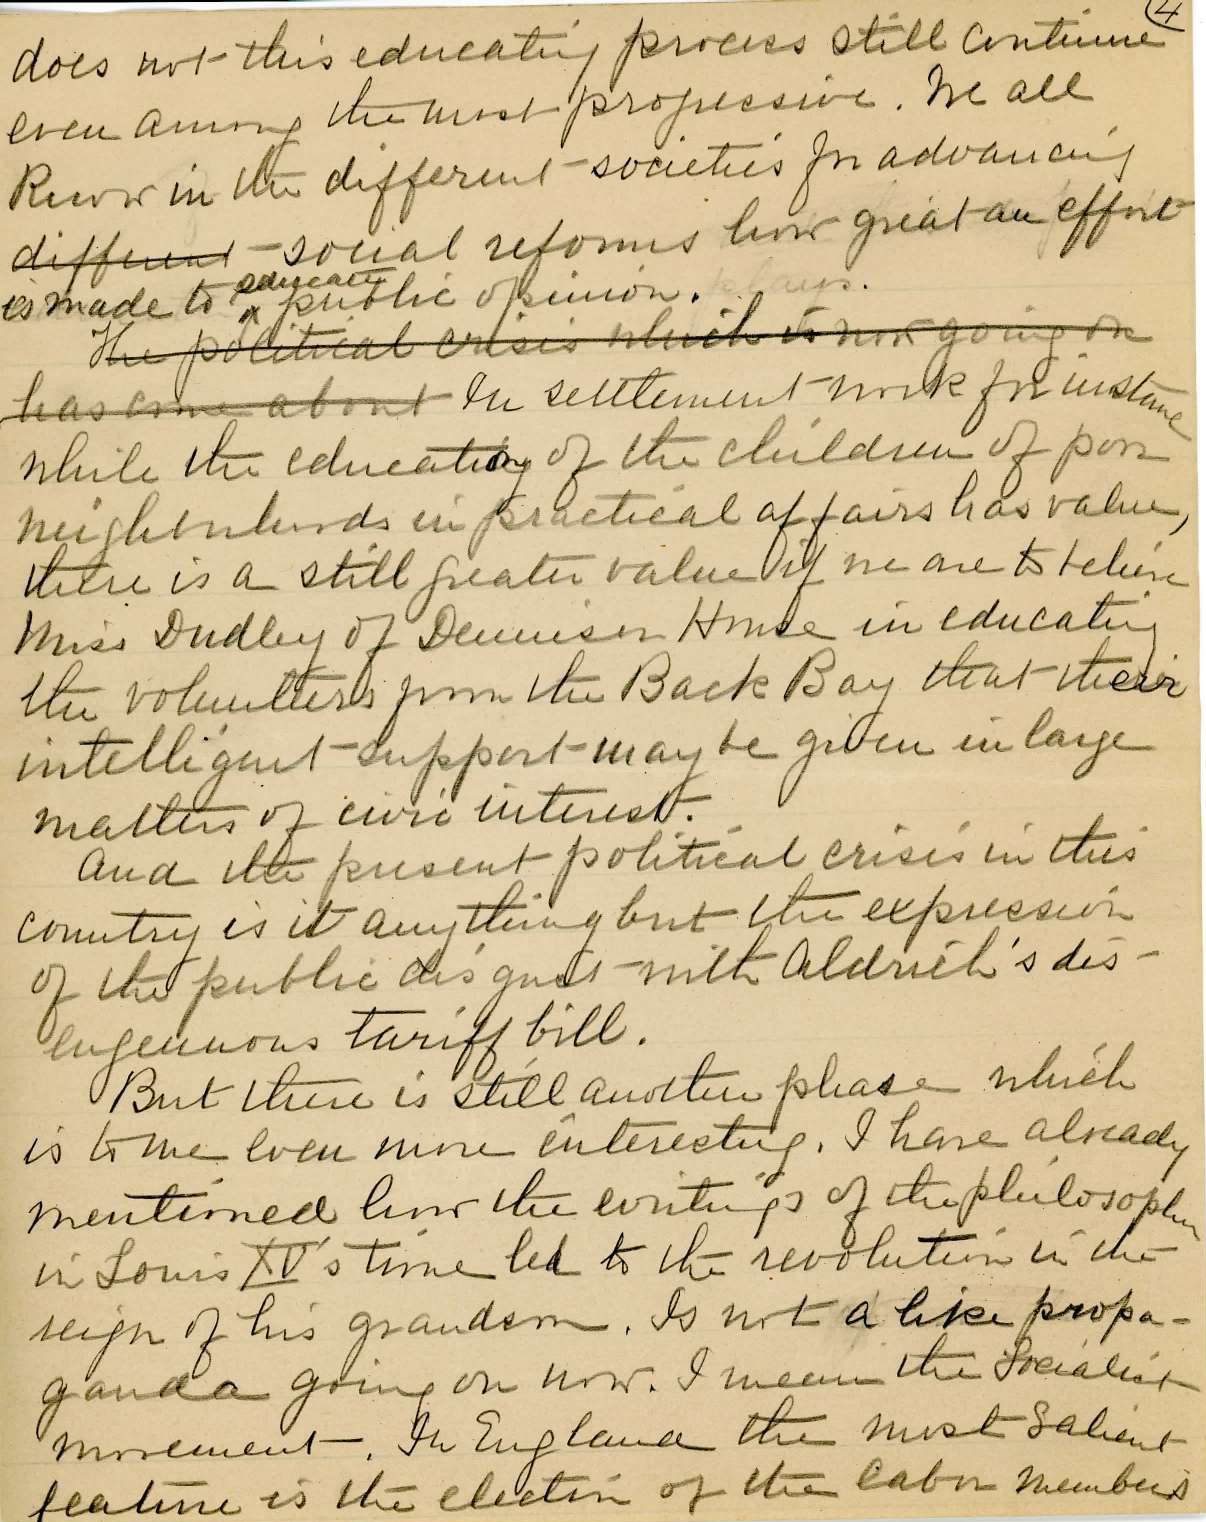 4
does not this educating process still continue
even among the most progressive. We all
know in the different societies for advancing
different social reforms how great an effort
is made to educate public opinion.
The political crisis which is now going on
has come about In settlement work for instance
while the education of the children of poor
neighborhoods in practical affairs has value,
there is a still greater value if we are to believe
Miss Dudley of Dennison House in educating
the volunteers from the Back Bay that their
intelligent support may be given in large
matters of civic interest.
And the present political crisis in this
country is it anything but the expression
of the public disgust with Aldrich's dis-
engenuous tariff bill.
But there is still another phase which
is to me even more interesting. I have already
mentioned how the writings of the philosopher
in Louis XV's time led to the revolution in the
reign of his grandson. Is not a like propa-
ganda going on now. I mean the Socialist
movement. In England the most salient
feature is the election of the labor members